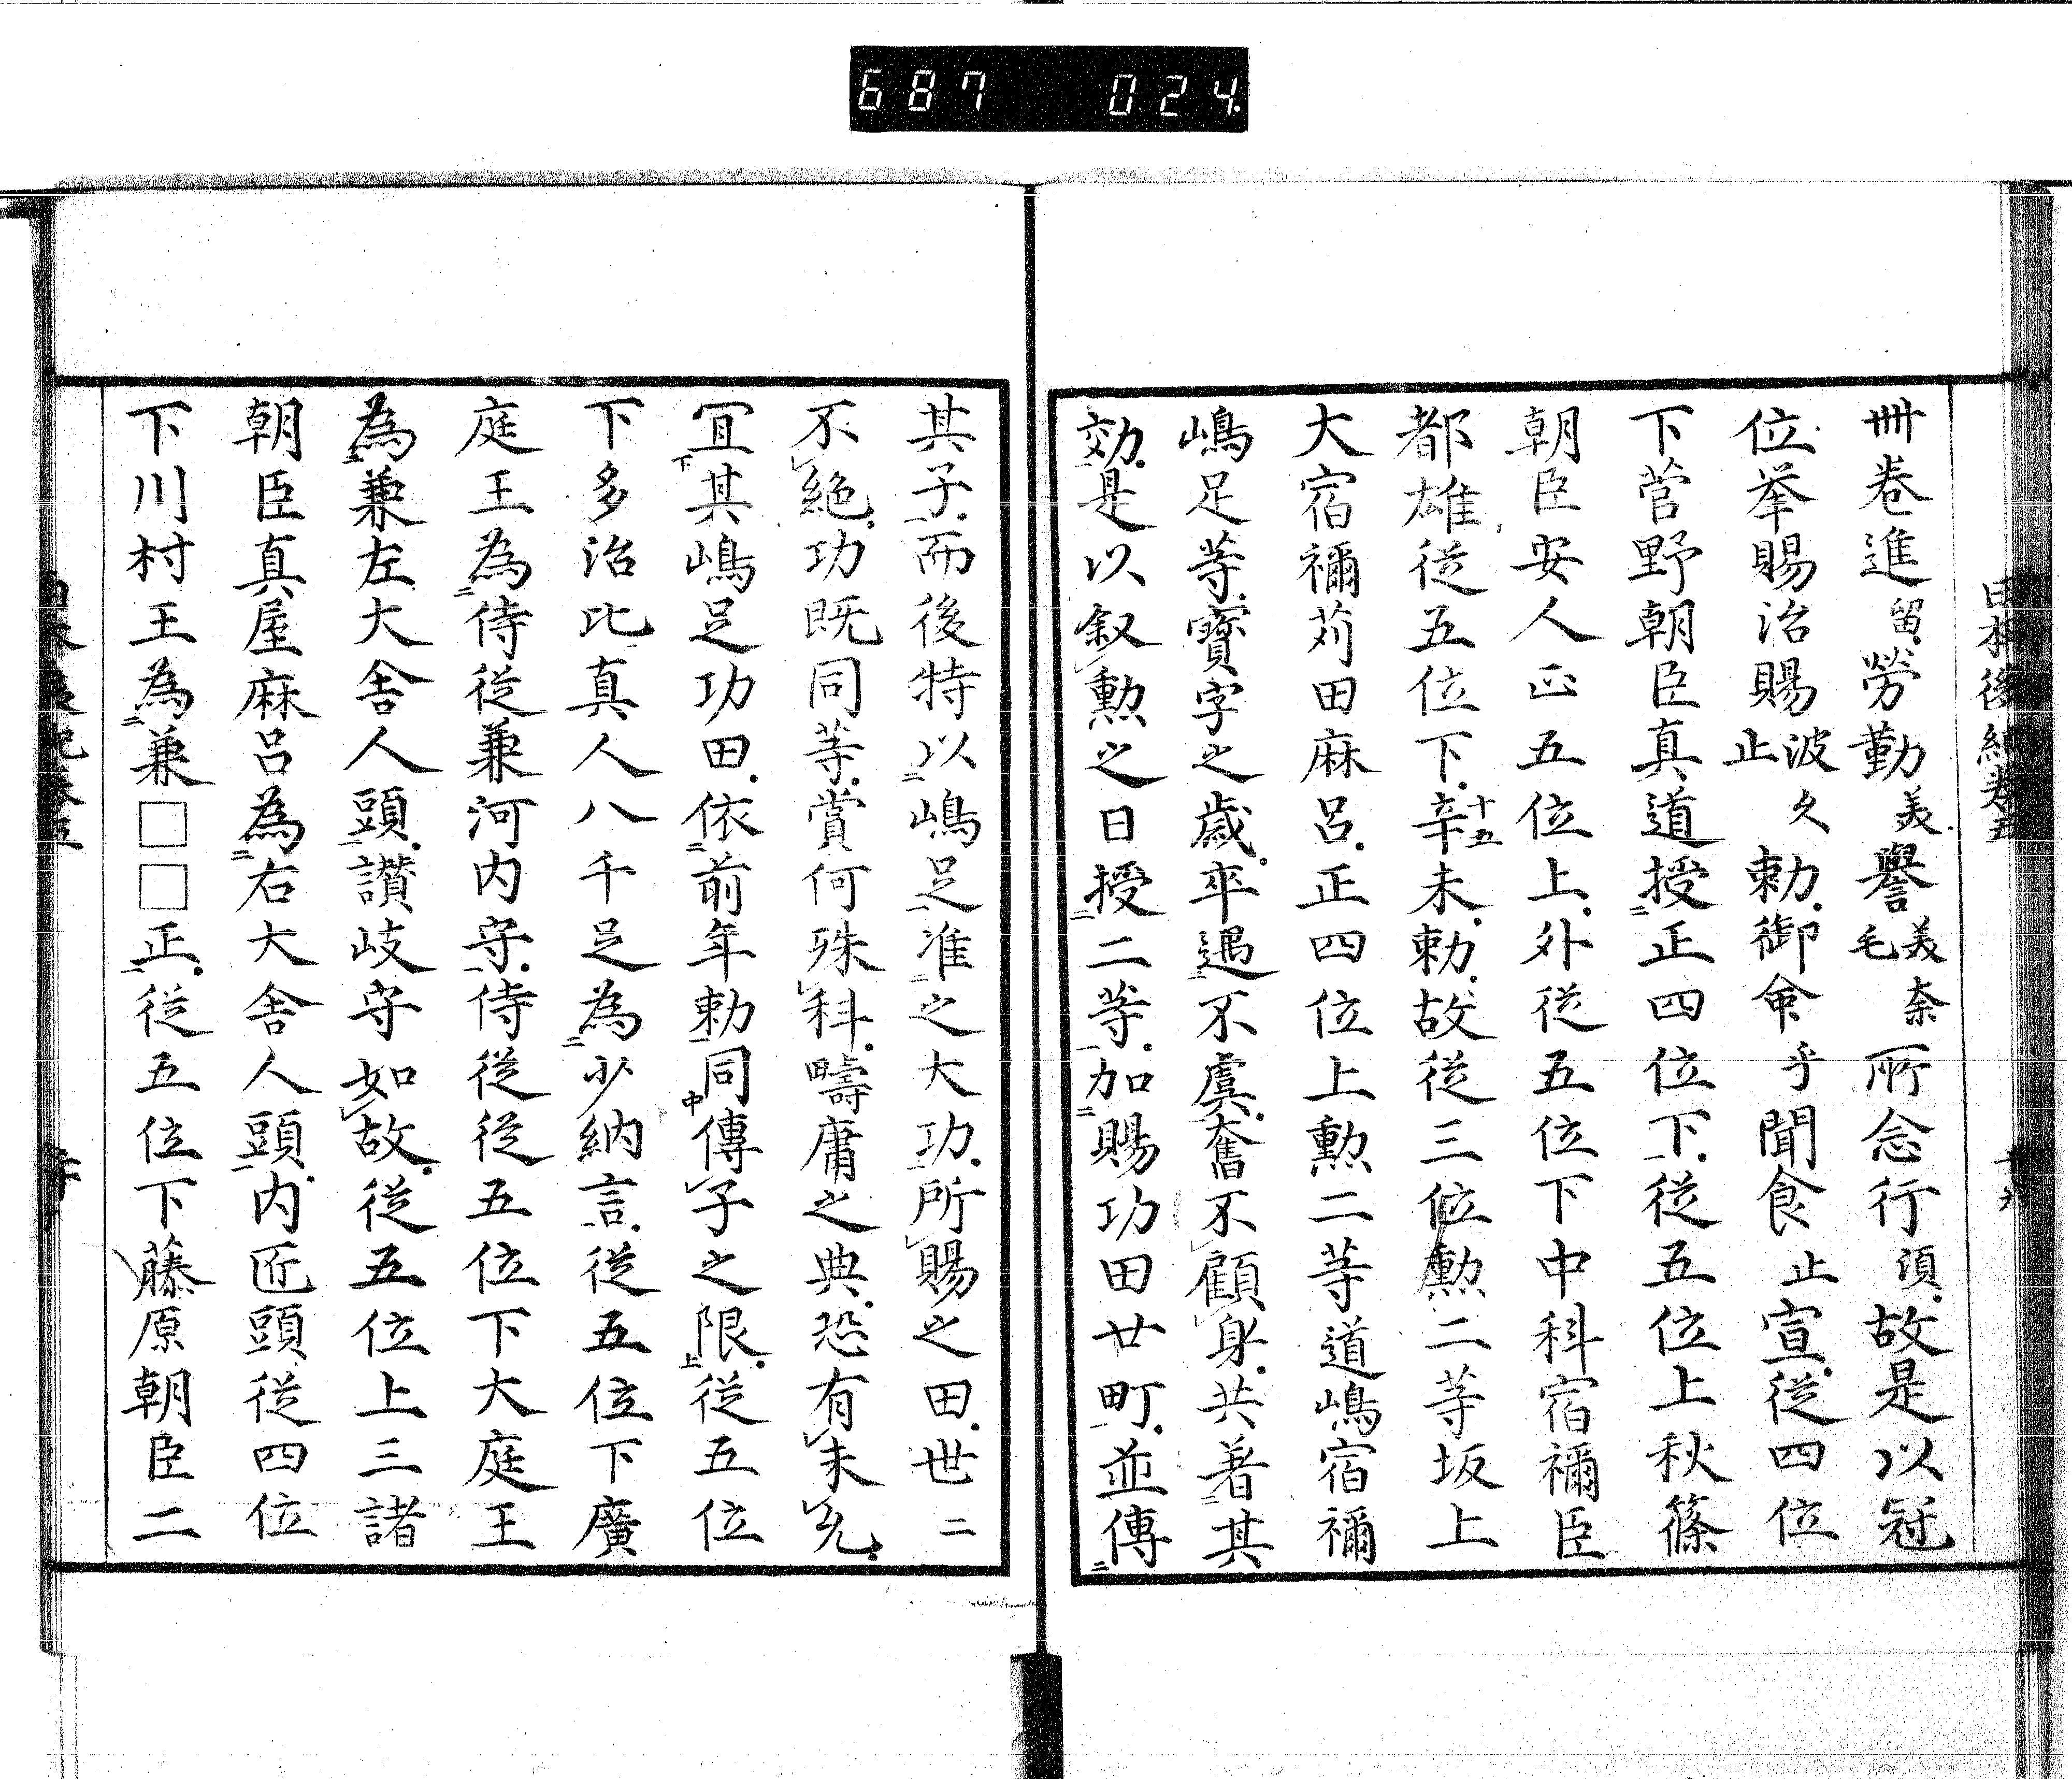 687 024
日本後紀巻五
卌巻進留勞勤美譽美奈毛所念行須故是以冠
位挙賜治賜波久止勅御命乎聞食止宣從四位
下菅野朝臣真道授正四位下從五位上秋篠
朝臣安人正五位上外從五位下中科宿禰臣
都雄從五位下十五辛未勅故從三位勲二等坂上
大宿禰苅田麻呂正四位上勲二等道嶋宿禰
嶋足等寶字之歳卒遇不虞奮不顧身共著其
効是以叙勲之日授二等加賜功田廿町並傳
其子而後特以嶋足准之大功所賜之田世二
不絶功既同等賞何殊科疇庸之典恐有未允
冝其嶋足功田依前年勅同傳子之限從五位
下多治比真人八千足為少納言從五位下廣
庭王為侍從兼河内守侍從從五位下大庭王
為兼左大舎人頭讃岐守如故從五位上三諸
朝臣真屋麻呂為右大舎人頭内匠頭從四位
下川村王為兼□□正從五位下藤原朝臣二